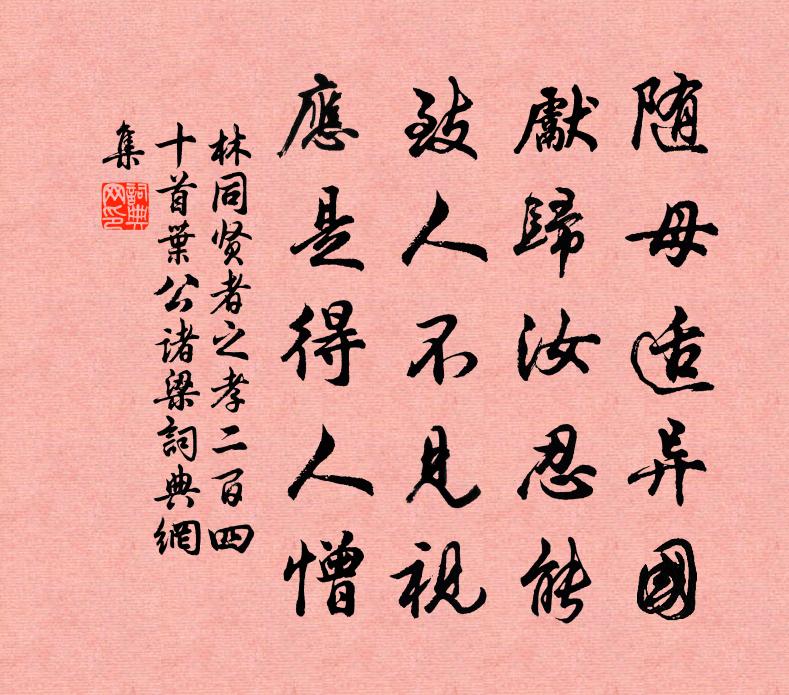 随母适异國
獻歸汝忍能
致人不見視
應是得人憎
林同贤者之孝二百四
十首葉公诸梁詞典網
集
詞典网印